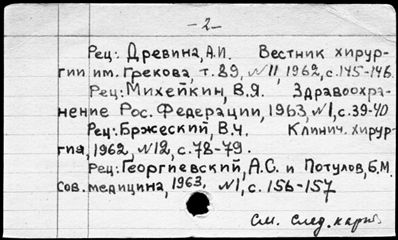 -2-
Рец: Древина, А.И. Вестник хирур-
гии им. Грекова, т. 89, №11, 1962, с. 145-146.
Рец: Михейкин, В.Я. Здравоохра-
нение Рос. Федерации, 1963, №1, с. 39-40
Рец: Бржеский, В.Ч. Клинич. хирур-
гия, 1962, №12, с. 78-79.
Рец: Георгиевский, А.С. и Потулов, Б.М.
Сов. медицина, 1963, №1, с. 156-157
См. след. карт.